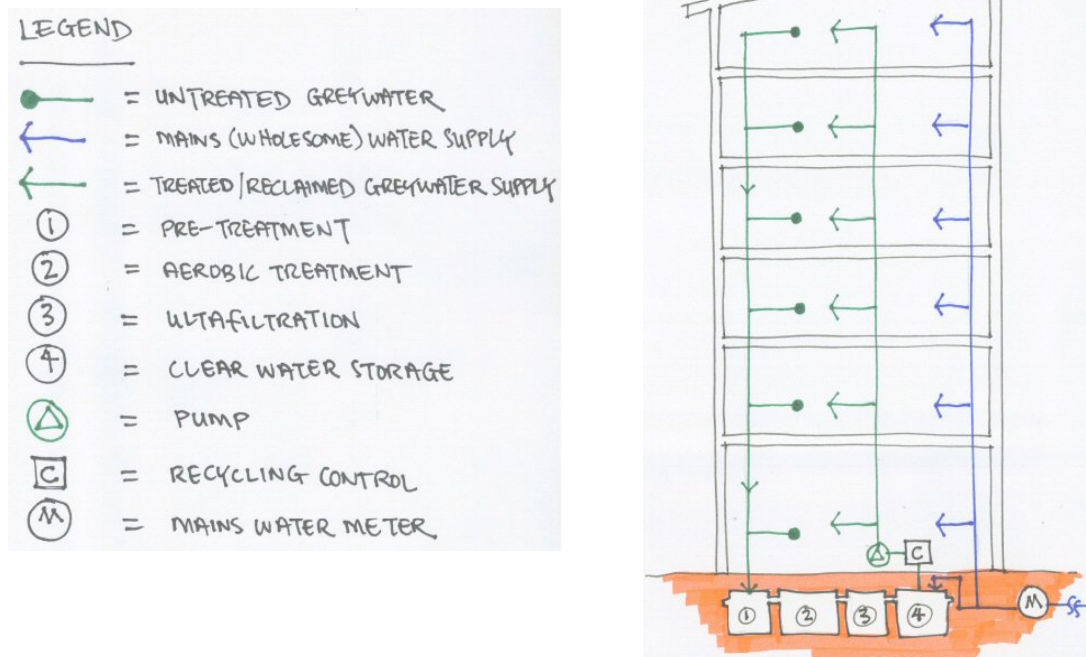 LEGEND
= UNTREATED GREYWATER
= MAINS (WHOLESOME) WATER SUPPLY
= TREATED/RECLAIMED GREYWATER SUPPLY
1 = PRE-TREATMENT
2 = AEROBIC TREATMENT
3 = ULTAFILTRATION
4 = CLEAR WATER STORAGE
= PUMP
C = RECYCLING CONTROL
M = MAINS WATER METER
C
1 2 3 4 M